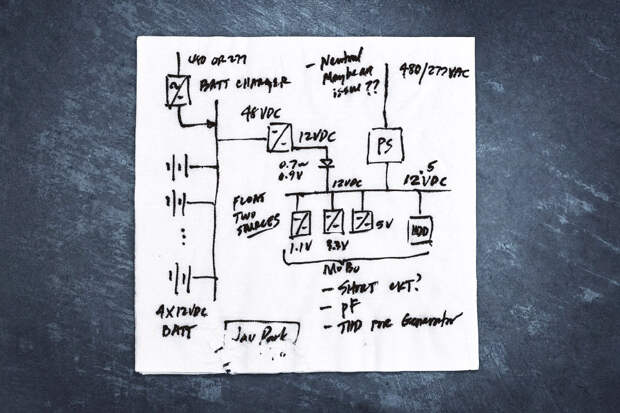 480 OR 277
BATT CHARGER
- Neutral
Maybe an
issue??
480/277VAC
48VDC
12VDC
PS
0.7~
0.9V
12VDC
12.5VDC
FLOAT
TWO
1.1V
3.3V
5V
HDD
MoBo
- SHORT CKT?
- PF
- THD FOR Generator
4X12VDC
BATT
Jay Park